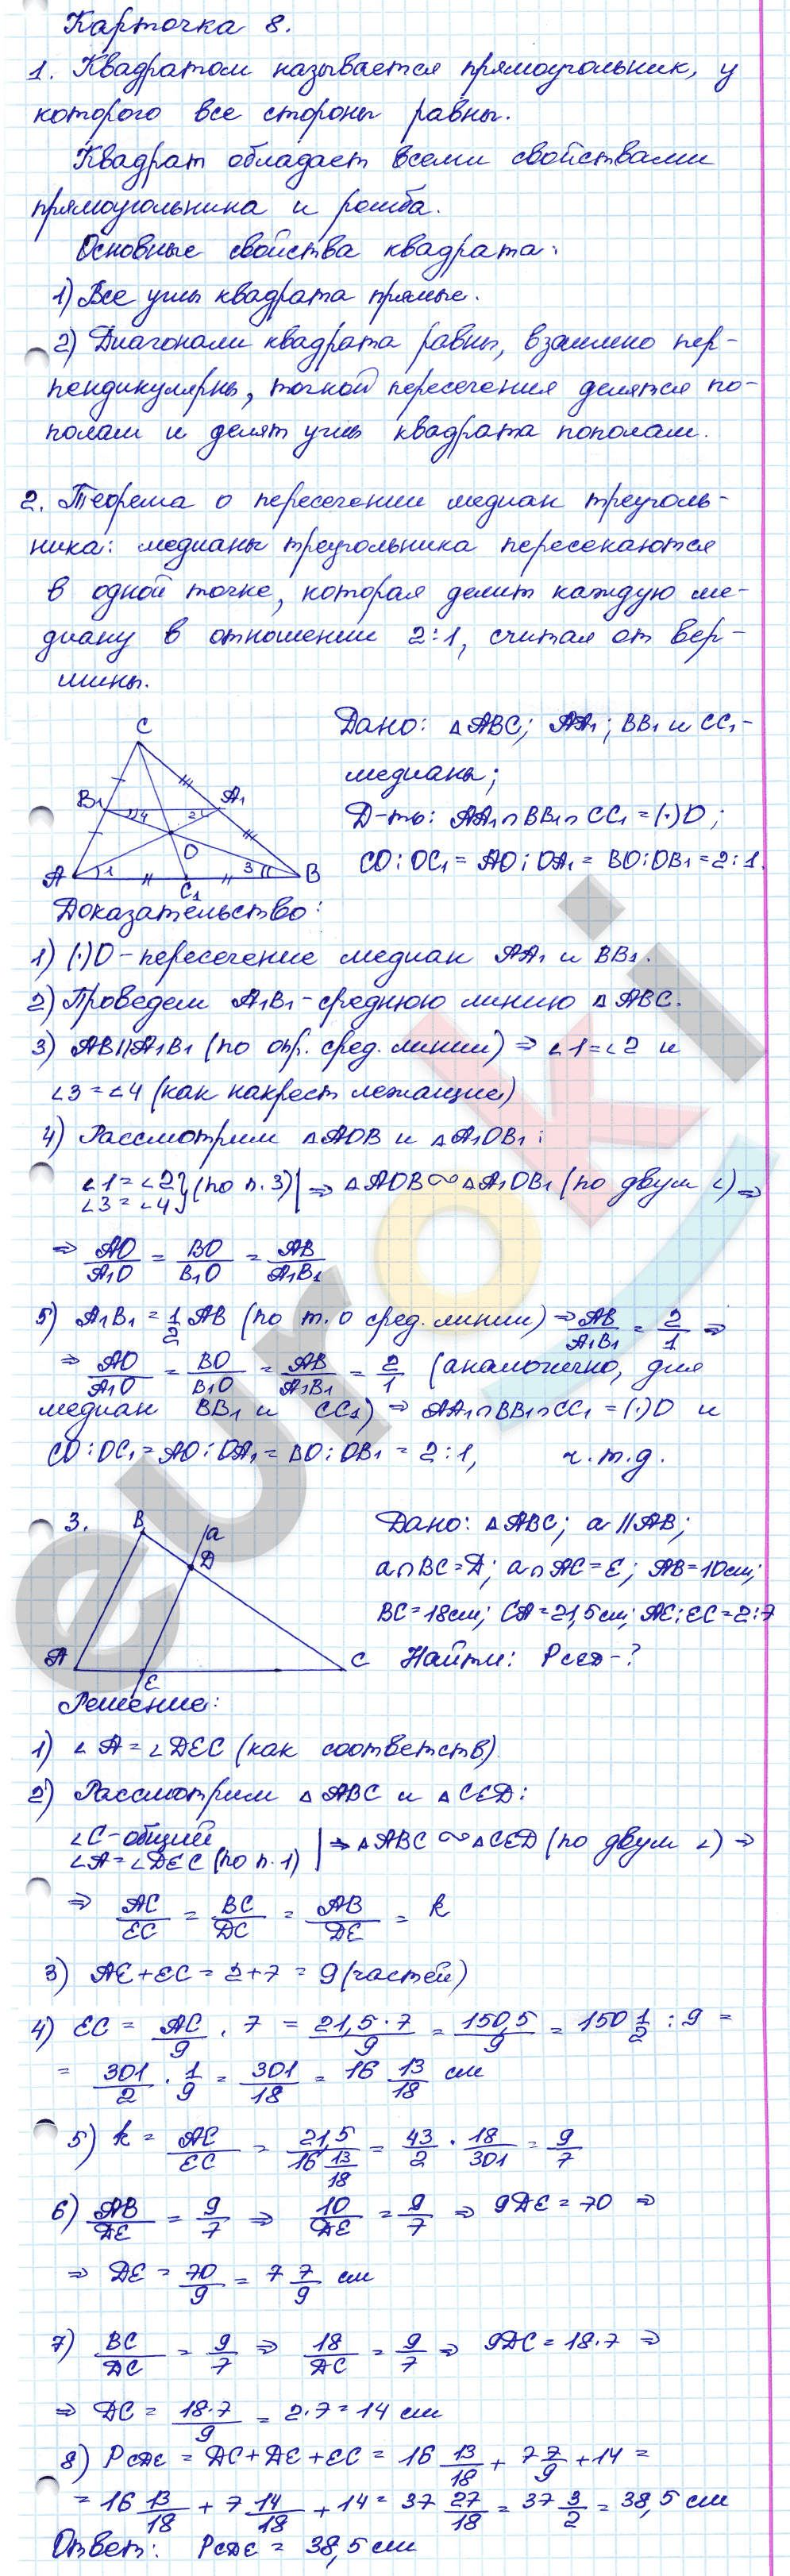 Карточка 8.
1. Квадратом называется прямоугольник, у
которого все стороны равны.
Квадрат обладает всеми свойствами
прямоугольника и ромба.
Основные свойства квадрата:
1) Все углы квадрата прямые.
2) Диагонали квадрата равны, взаимно пер-
пендикулярны, точкой пересечения делятся по-
полам и делят углы квадрата пополам.
2. Теорема о пересечении медиан треуголь-
ника: медианы треугольника пересекаются
в одной точке, которая делит каждую ме-
диану в отношении 2:1, считая от вер-
шины.
C
B₁ 4 2 A₁
O
A 1 3 B
C₁
Дано: △ABC; AA₁; BB₁ и CC₁-
медианы;
Д-ть: AA₁∩BB₁∩CC₁=(·)O;
CO:OC₁=AO:OA₁=BO:OB₁=2:1.
Доказательство:
1) (·)O-пересечение медиан AA₁ и BB₁.
2) Проведем A₁B₁-среднюю линию △ABC.
3) AB∥A₁B₁ (по опр. сред. линии) ⇒ ∠1=∠2 и
∠3=∠4 (как накрест лежащие)
4) Рассмотрим △AOB и △A₁OB₁:
∠1=∠2
∠3=∠4} (по п.3)| ⇒ △AOB∾△A₁OB₁ (по двум ∠) ⇒
⇒ AO/A₁O = BO/B₁O = AB/A₁B₁
5) A₁B₁=1/2 AB (по т. о сред. линии) ⇒ AB/A₁B₁ = 2/1 ⇒
⇒ AO/A₁O = BO/B₁O = AB/A₁B₁ = 2/1 (аналогично, для
медиан BB₁ и CC₁) ⇒ AA₁∩BB₁∩CC₁=(·)O и
CO:OC₁=AO:OA₁=BO:OB₁=2:1, ч.т.д.
3.
B a
D
A E C
Дано: △ABC; a∥AB;
a∩BC=D; a∩AC=E; AB=10см;
BC=18см; CA=21,5см; AE:EC=2:7
Найти: PCED-?
Решение:
1) ∠A=∠DEC (как соответств.)
2) Рассмотрим △ABC и △CED:
∠C-общий
∠A=∠DEC (по п.1) | ⇒ △ABC∾△CED (по двум ∠) ⇒
⇒ AC/EC = BC/DC = AB/DE = k
3) AE+EC=2+7=9(частей)
4) EC = AC/9 · 7 = 21,5·7/9 = 150,5/9 = 150 1/2 : 9 =
= 301/2 · 1/9 = 301/18 = 16 13/18 см
5) k = AC/EC = 21,5/16 13/18 = 43/2 · 18/301 = 9/7
6) AB/DE = 9/7 ⇒ 10/DE = 9/7 ⇒ 9DE=70 ⇒
⇒ DE = 70/9 = 7 7/9 см
7) BC/DC = 9/7 ⇒ 18/DC = 9/7 ⇒ 9DC=18·7 ⇒
⇒ DC = 18·7/9 = 2·7=14 см
8) PCDE = DC+DE+EC = 16 13/18 + 7 7/9 + 14 =
= 16 13/18 + 7 14/18 + 14 = 37 27/18 = 37 3/2 = 38,5 см
Ответ: PCDE = 38,5 см
euroki